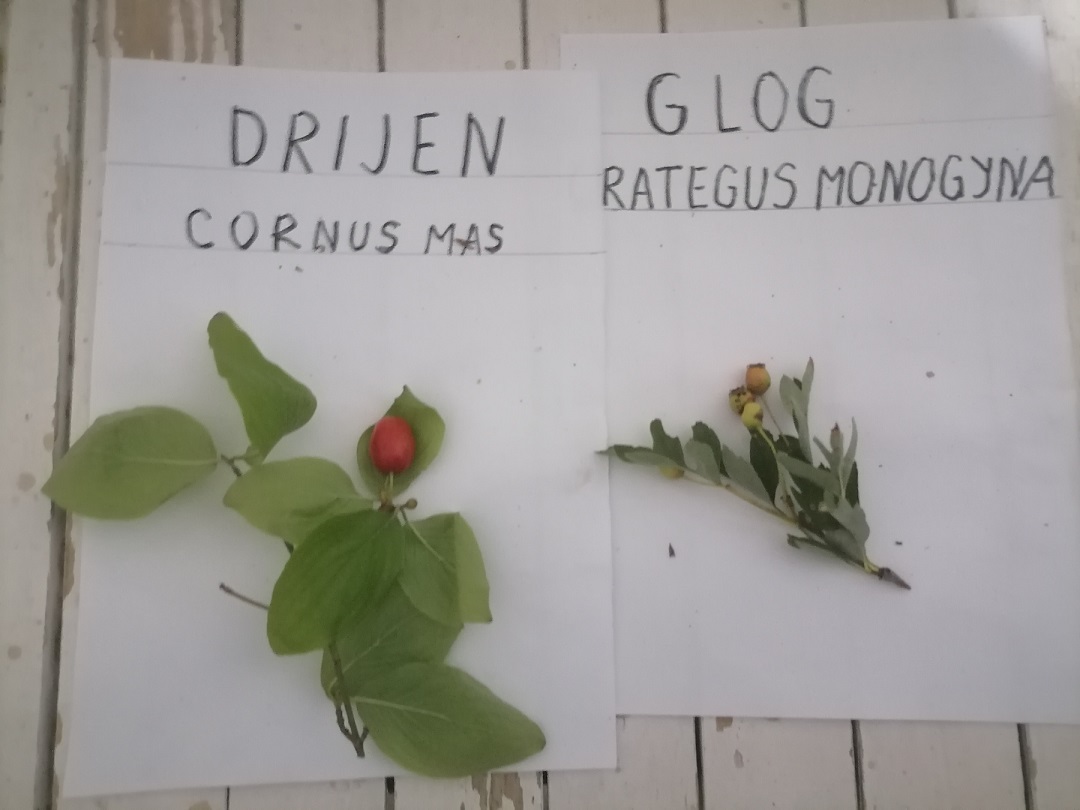 DRIJEN
CORNUS MAS
GLOG
RATEGUS MONOGYNA